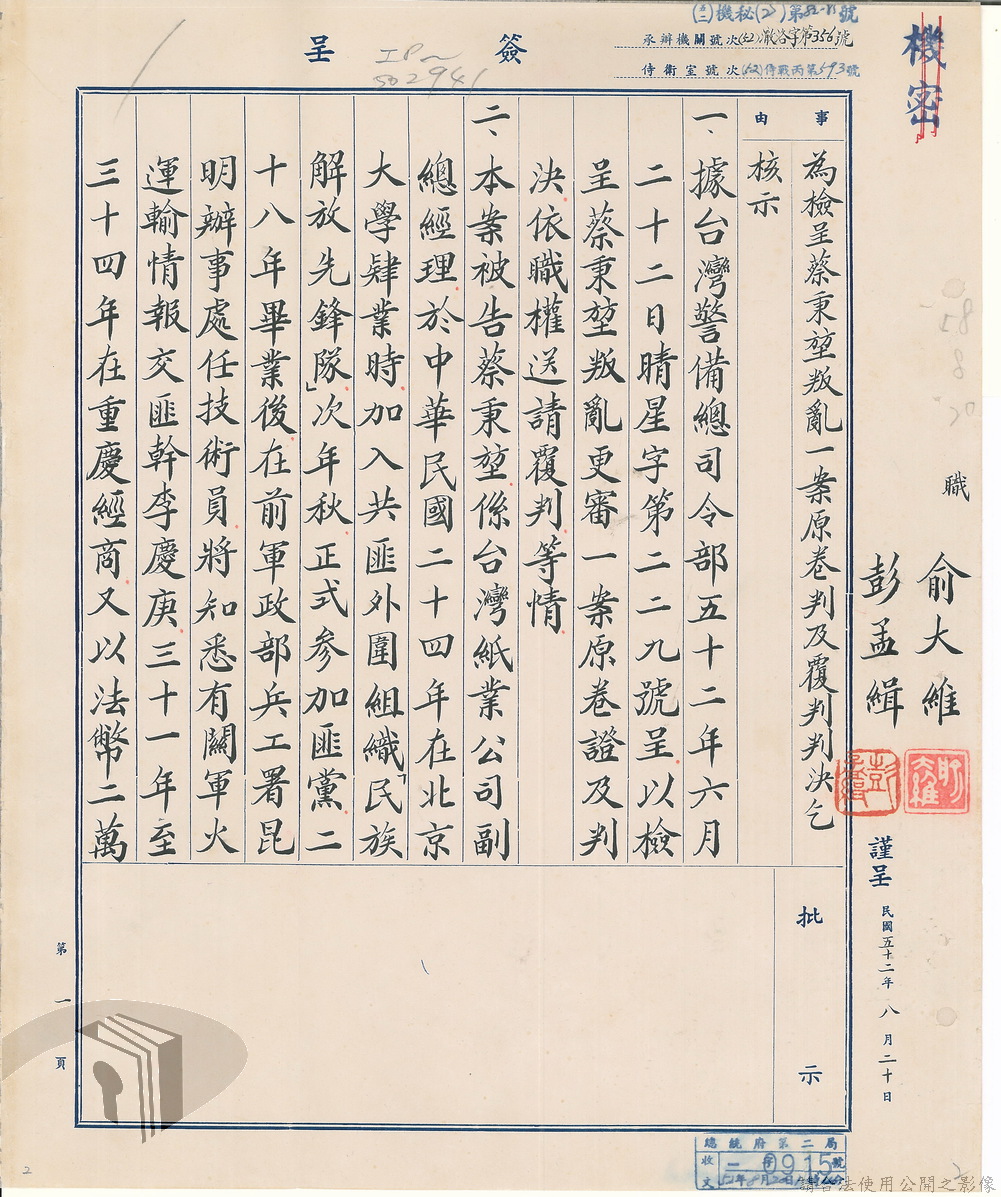 機密
簽呈
承辦機關號次(52)澈洛字第356號
侍衛室號次(52)侍戰丙第593號
職
俞大維
彭孟緝
謹呈
民國五十二年八月二十日
事由
為檢呈蔡秉堃叛亂一案原卷判及覆判判決乞
核示
一、據台灣警備總司令部五十二年六月
二十二日晴星字第二二九號呈以檢
呈蔡秉堃叛亂更審一案原卷證及判
決依職權送請覆判等情
二、本案被告蔡秉堃係台灣紙業公司副
總經理於中華民國二十四年在北京
大學肄業時加入共匪外圍組織「民族
解放先鋒隊」次年秋正式參加匪黨二
十八年畢業後在前軍政部兵工署昆
明辦事處任技術員將知悉有關軍火
運輸情報交匪幹李慶庚三十一年至
三十四年在重慶經商又以法幣二萬
批示
第一頁
總統府第二局
收文
0915號
請合法使用公開之影像